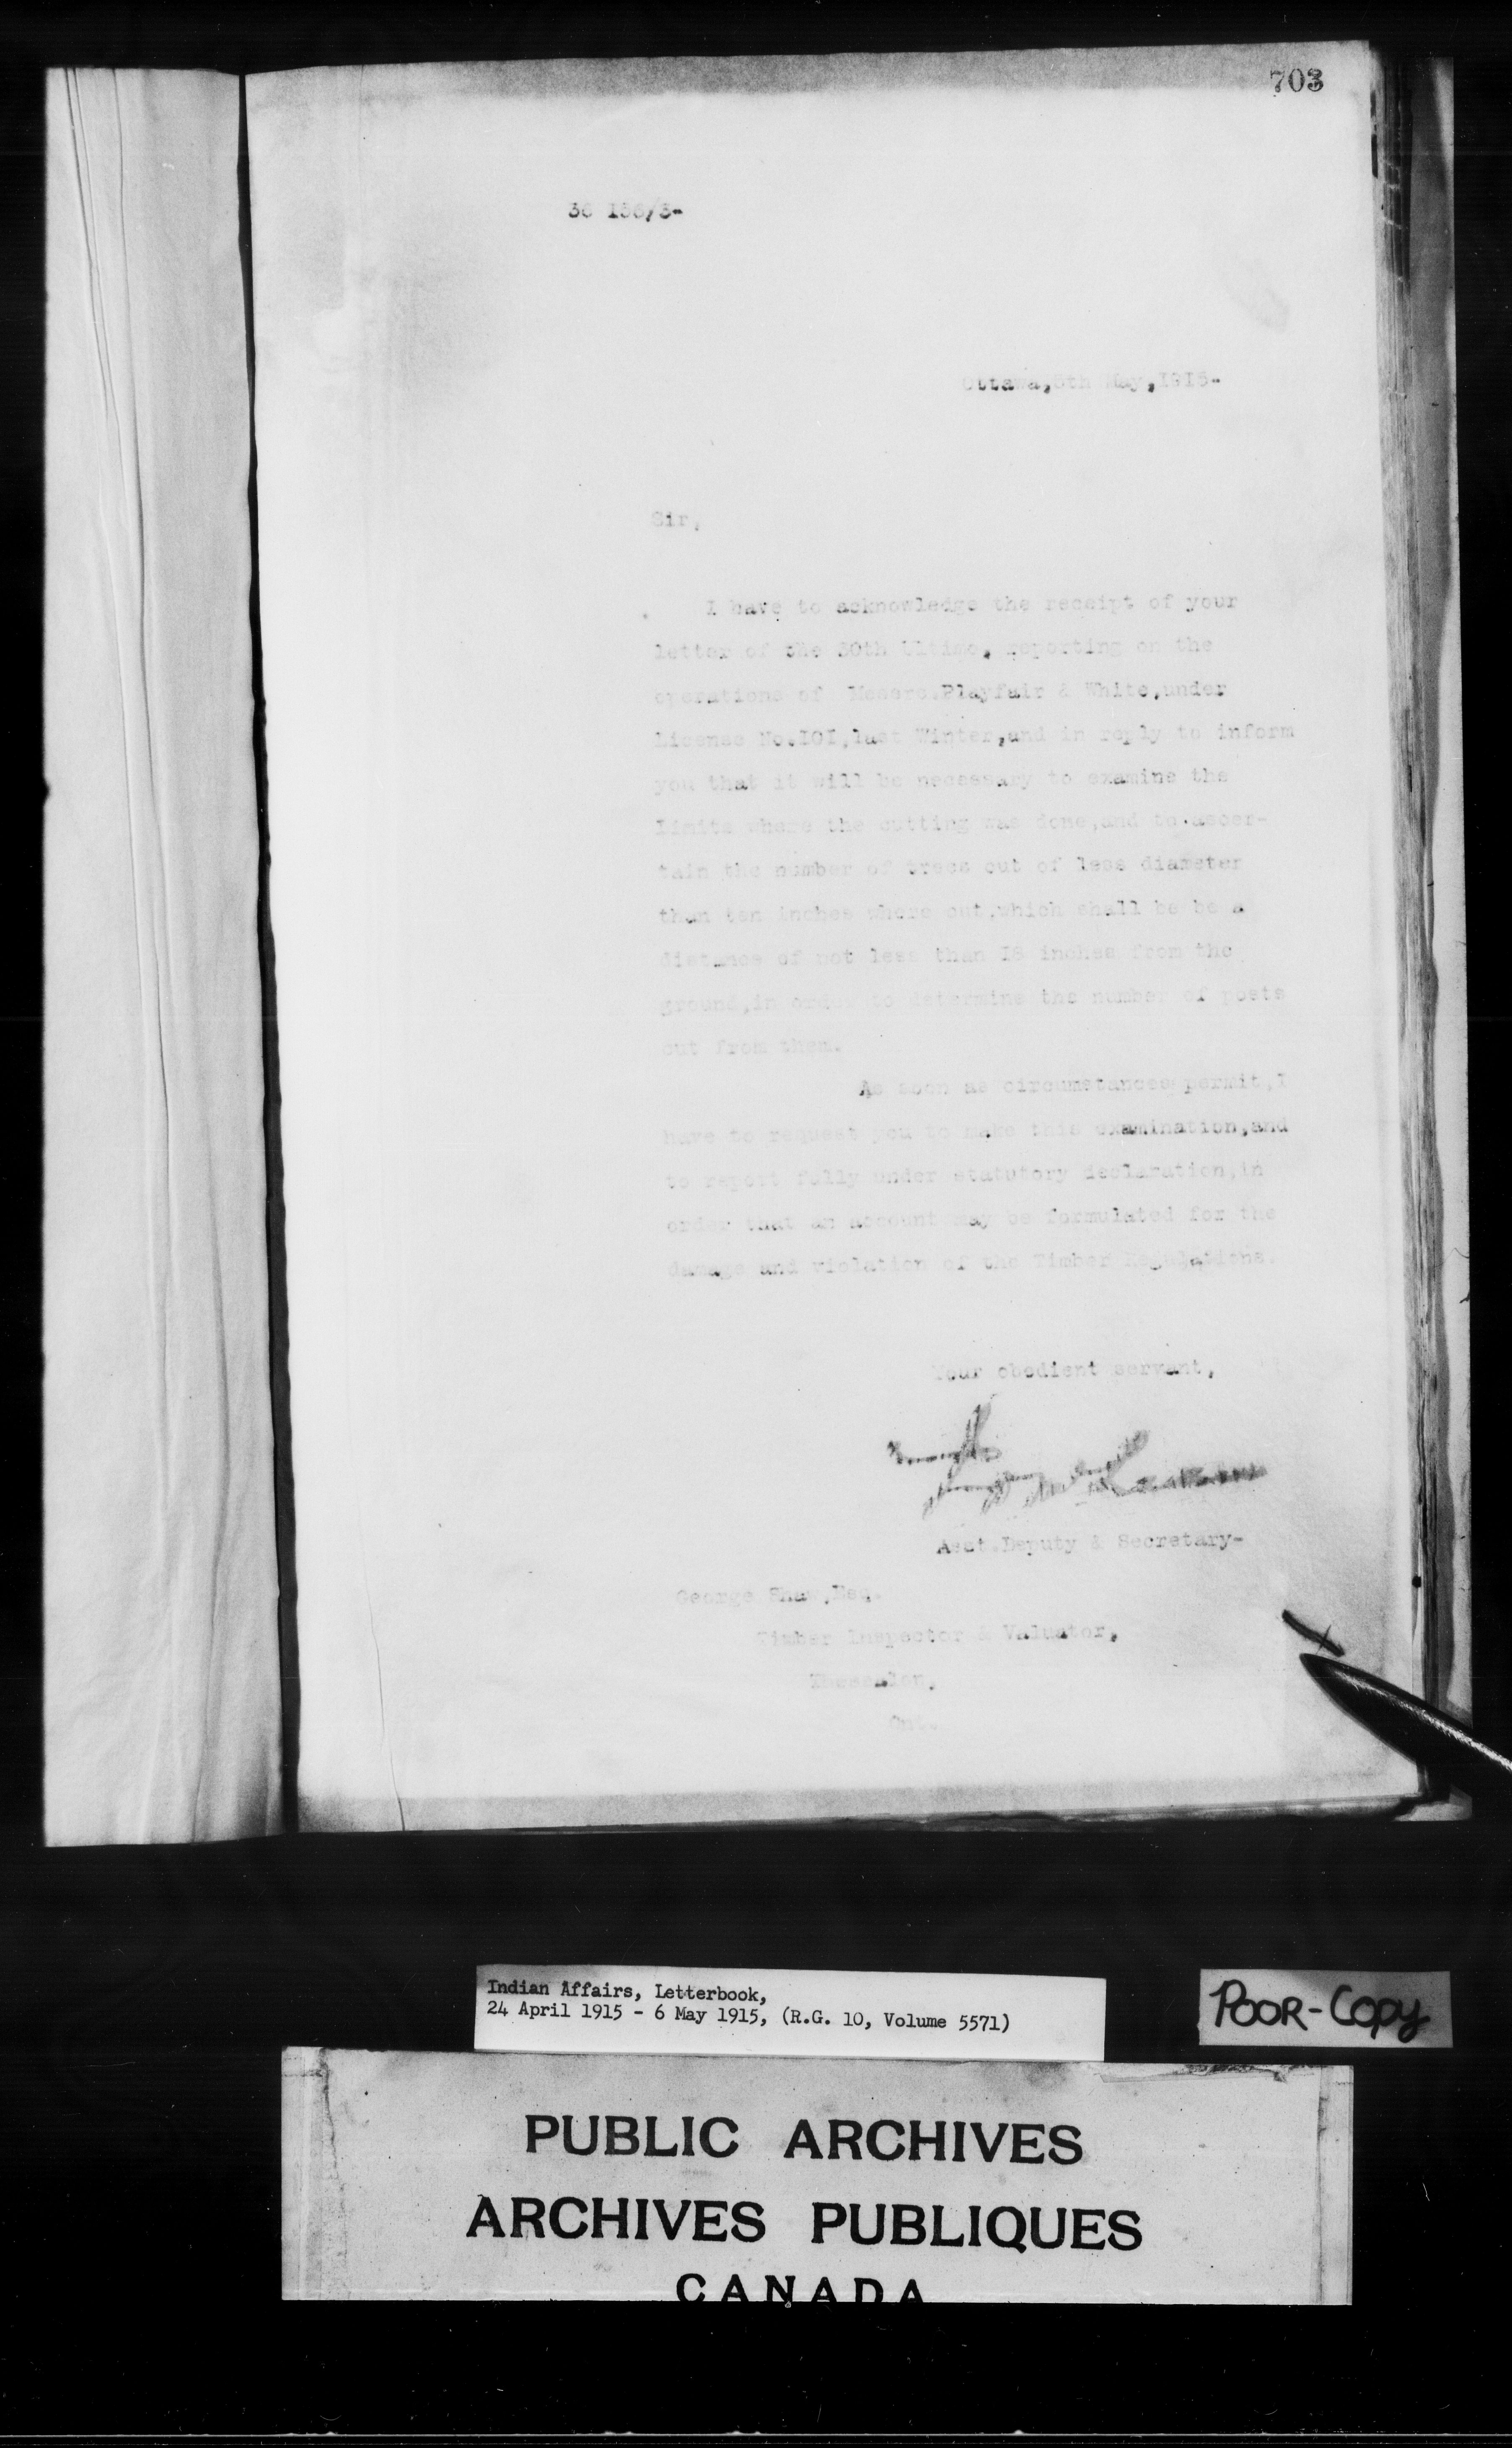 703
36 156/3-
Ottawa,5th May,1915-
Sir,
I have to acknowledge the receipt of your
letter of the 30th Ultimo, reporting on the
operations of Messrs.Playfair & White,under
License No.IOI,last Winter,and in reply to inform
you that it will be necessary to examine the
limits where the cutting was done,and to ascer-
tain the number of trees cut of less diameter
than ten inches where cut,which shall be be a
distance of not less than I8 inches from the
ground,in order to determine the number of posts
cut from them.
As soon as circumstances permit,I
have to request you to make this examination,and
to report fully under statutory declaration,in
order that an account may be formulated for the
damage and violation of the Timber Regulations.
Your obedient servant,
Asst.Deputy & Secretary-
George Shaw,Esq.
Timber Inspector & Valuator,
Thessalon,
Ont.
Indian Affairs, Letterbook,
24 April 1915 - 6 May 1915, (R.G. 10, Volume 5571)
POOR-COPY
PUBLIC ARCHIVES
ARCHIVES PUBLIQUES
CANADA